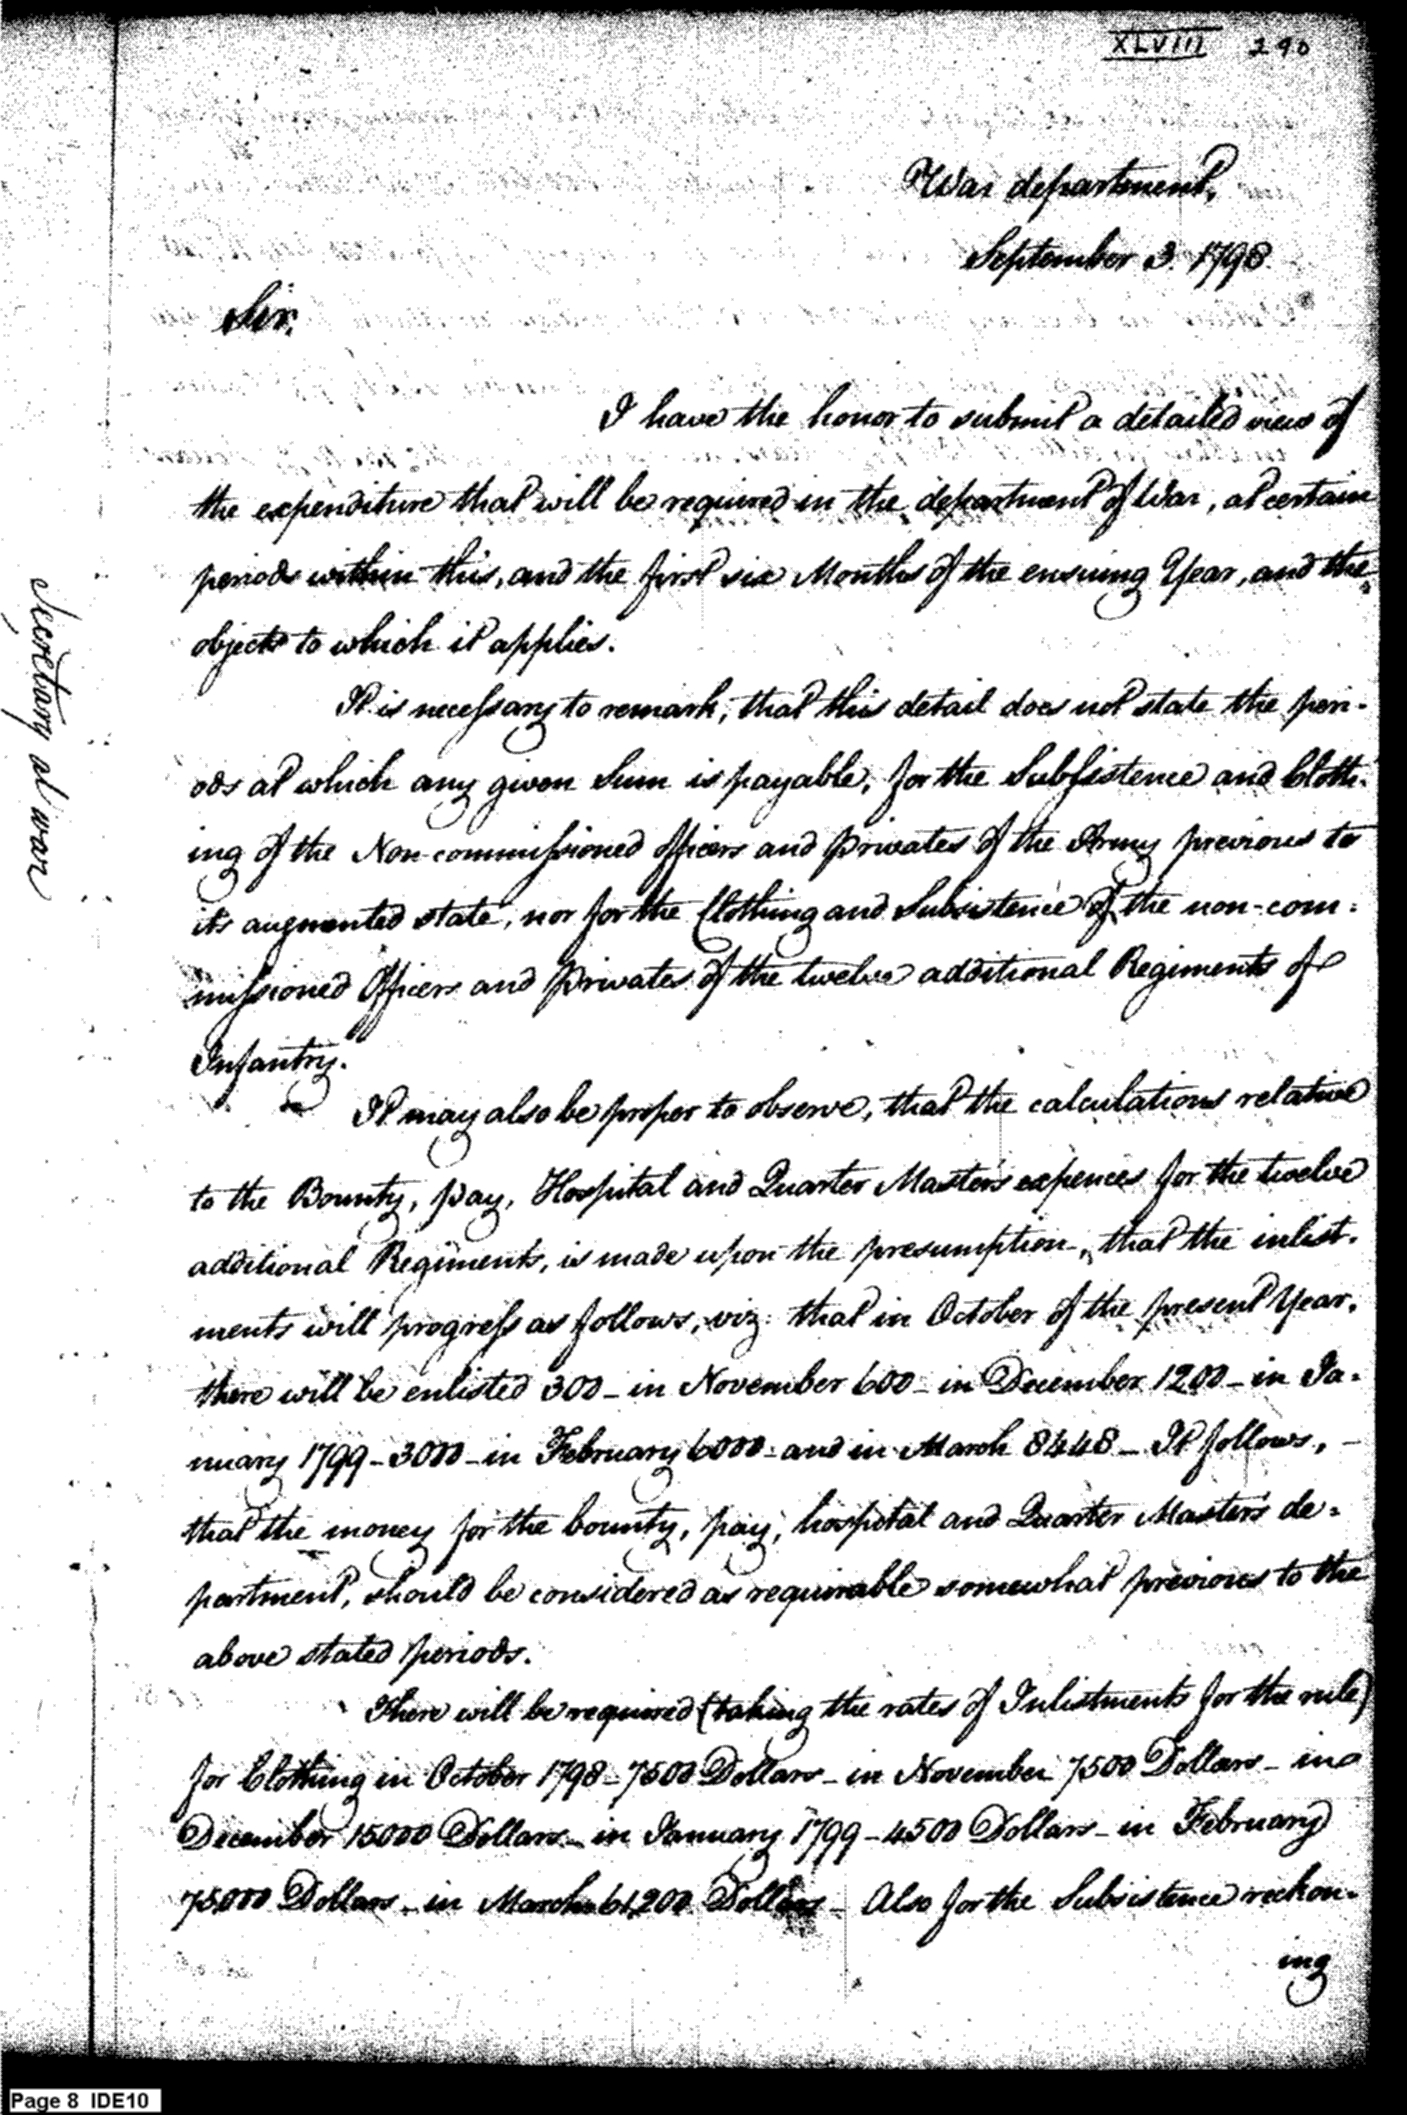 XLVIII 290
War department,
September 3. 1798.
Sir,
I have the honor to submit a detailed view of
the expenditure that will be required in the department of War, at certain
periods within this, and the first six Months of the ensuing Year, and the
objects to which it applies.
It is necessary to remark, that this detail does not state the peri-
ods at which any given Sum is payable, for the Subsistence and Cloth-
ing of the Non-commissioned officers and privates of the Army previous to
its augmented state, nor for the Clothing and Subsistence of the non-com=
missioned Officers and privates of the twelve additional Regiments of
Infantry.
It may also be proper to observe, that the calculations relative
to the Bounty, pay, Hospital and Quarter Master's expences for the twelve
additional Regiments, is made upon the presumption, that the inlist-
ments will progress as follows, viz: that in October of the present Year,
there will be enlisted 300 - in November 600 - in December 1200 - in Ja=
nuary 1799 - 3000 - in February 6000 - and in March 8448 - It follows, -
that the money for the bounty, pay, hospital and Quarter Master's de=
partment, should be considered as requirable somewhat previous to the
above stated periods.
There will be required (taking the rates of Inlistments for the rule)
for Clothing in October 1798 - 7500 Dollars - in November 7500 Dollars - in
December 15000 Dollars - in January 1799 - 4500 Dollars - in February
75,000 Dollars - in March 61,200 Dollars - Also for the Subsistence reckon-
ing
Secretary at war
Page 8 IDE10